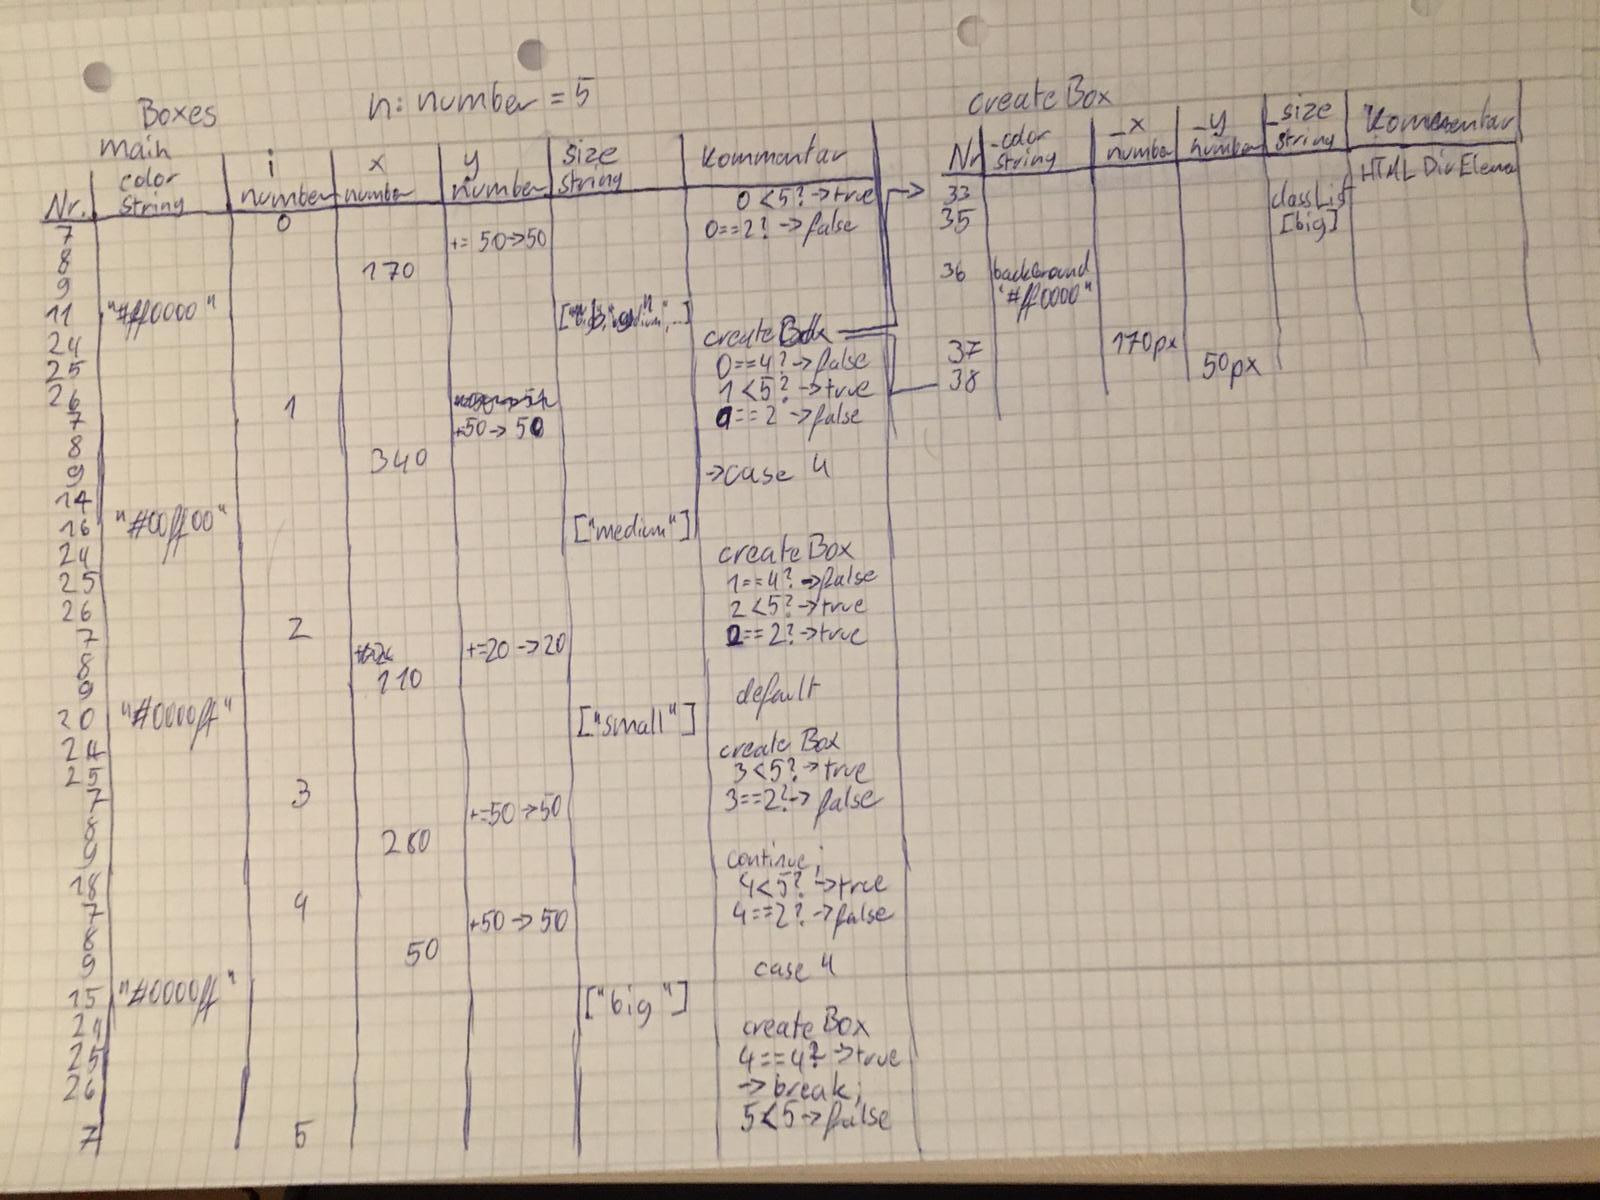 Boxes n: number = 5
main
Nr. color String i number x number y number size String Kommantar
7 0 0<5? → true
8 += 50→50 0==2? → false
9 170
11 "#ff0000"
24 createBox
25 0==4? → false
26 1 1<5? → true
7 +50→50 0==2 → false
8 340
9 → case 4
14
16 "#00ff00" ["medium"]
24 createBox
25 1==4? → false
26 2<5? → true
7 2 +=20→20 2==2? → true
8 110
9 default
20 "#0000ff" ["small"]
24 createBox
25 3<5? → true
7 3 +=50→50 3==2? → false
8 280
9 continue;
18 4<5? → true
7 4 +50→50 4==2? → false
8 50
9 case 4
15 "#0000ff" ["big"]
24 createBox
25 4==4? → true
26 → break;
5<5 → false
7 5
createBox
Nr _color String _x number _y number _size String Kommentar
33 HTML Div Eleme
35 classList [big]
36 background "#ff0000"
37 170px
38 50px